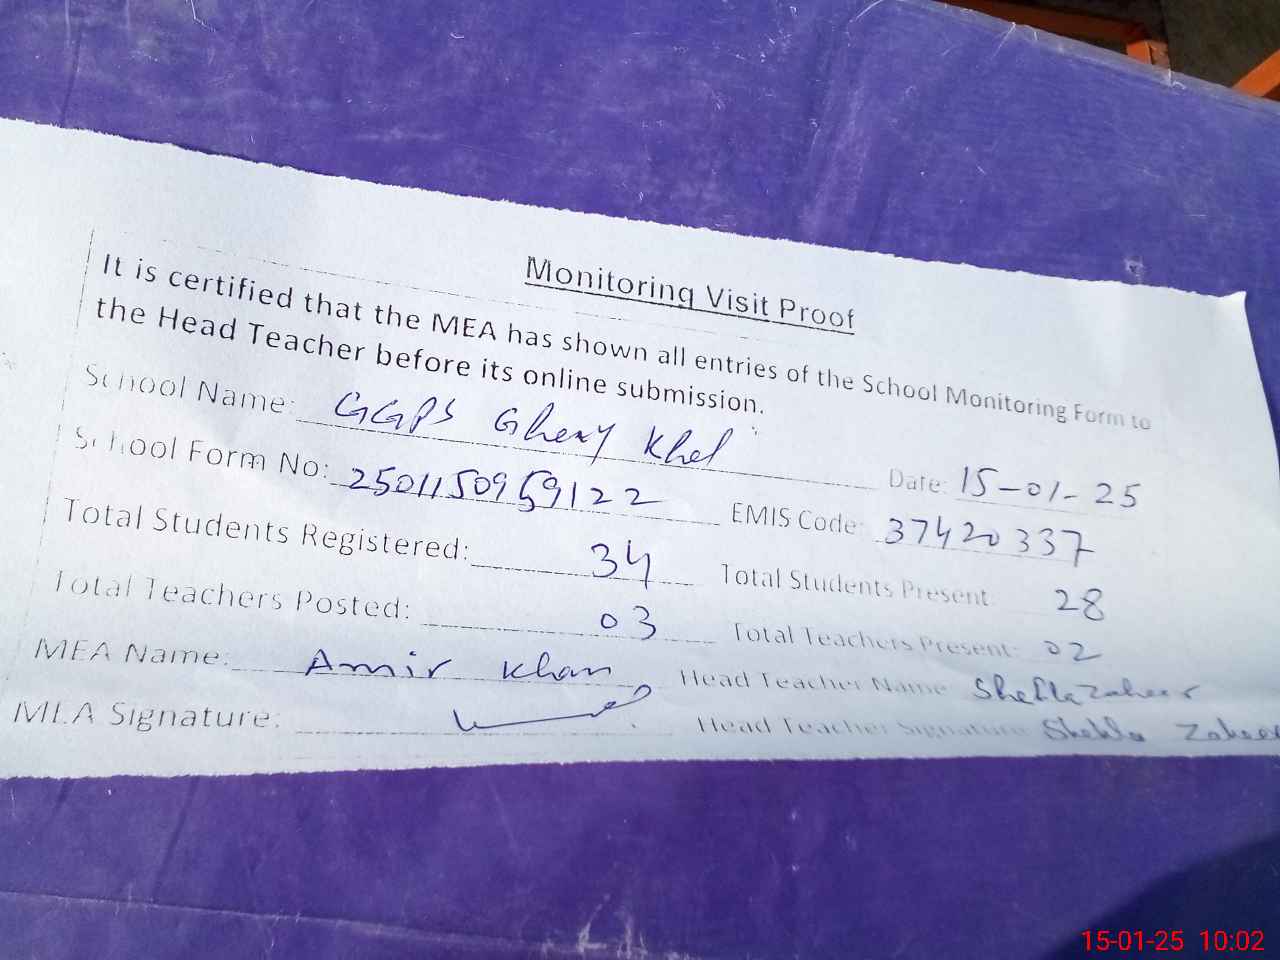 Monitoring Visit Proof
It is certified that the MEA has shown all entries of the School Monitoring Form to
the Head Teacher before its online submission.
School Name: GGPS Gheny Khel Date: 15-01-25
School Form No: 2501150959122 EMIS Code: 37420337
Total Students Registered: 34 Total Students Present: 28
Total Teachers Posted: 03 Total Teachers Present: 02
MEA Name: Amir Khan Head Teacher Name Shehla Zaheer
MEA Signature: Head Teacher Signature Shehla Zaheer
15-01-25 10:02